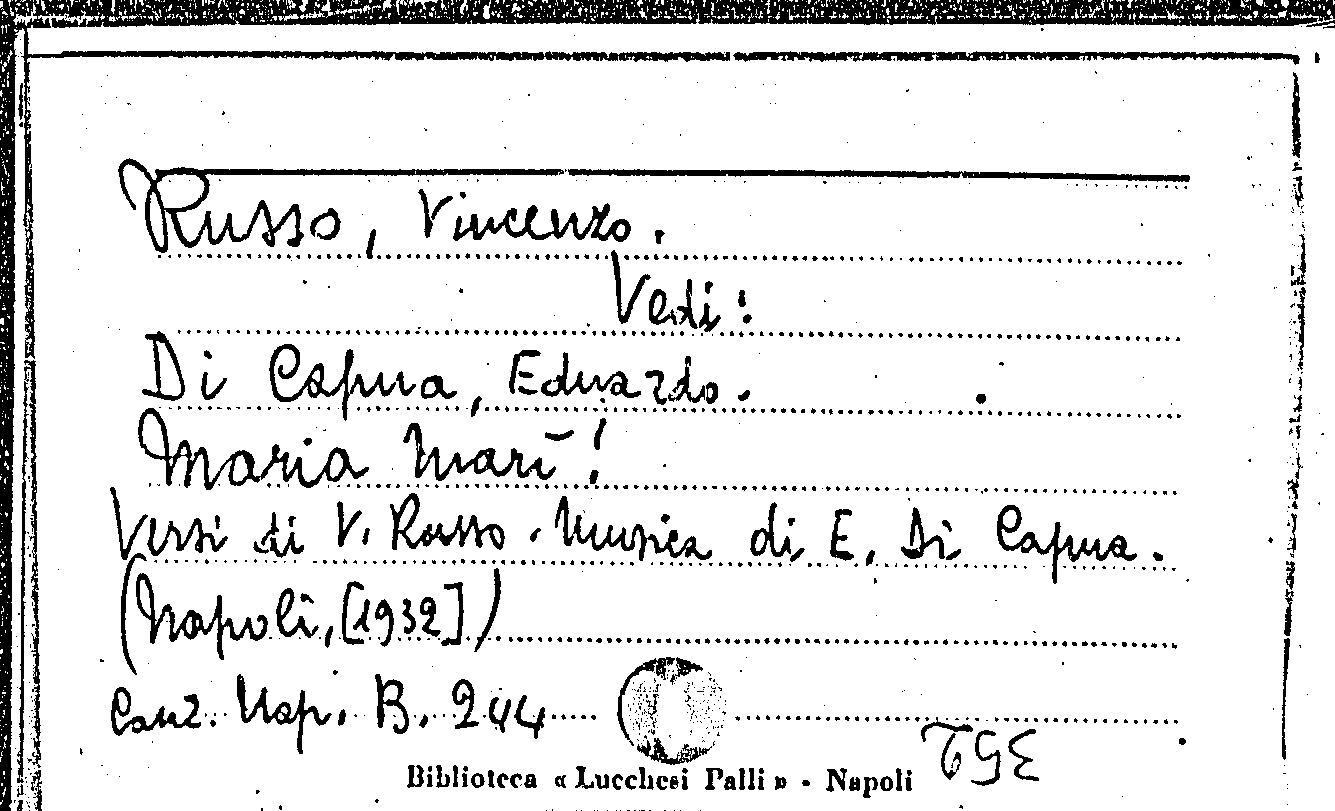 Russo, Vincenzo.
Vedi:
Di Capua, Eduardo.
Maria Marì!
Versi di V. Russo. Musica di E. Di Capua.
(Napoli, [1932])
Canz. Nap. B. 244
Biblioteca « Lucchesi Palli » - Napoli